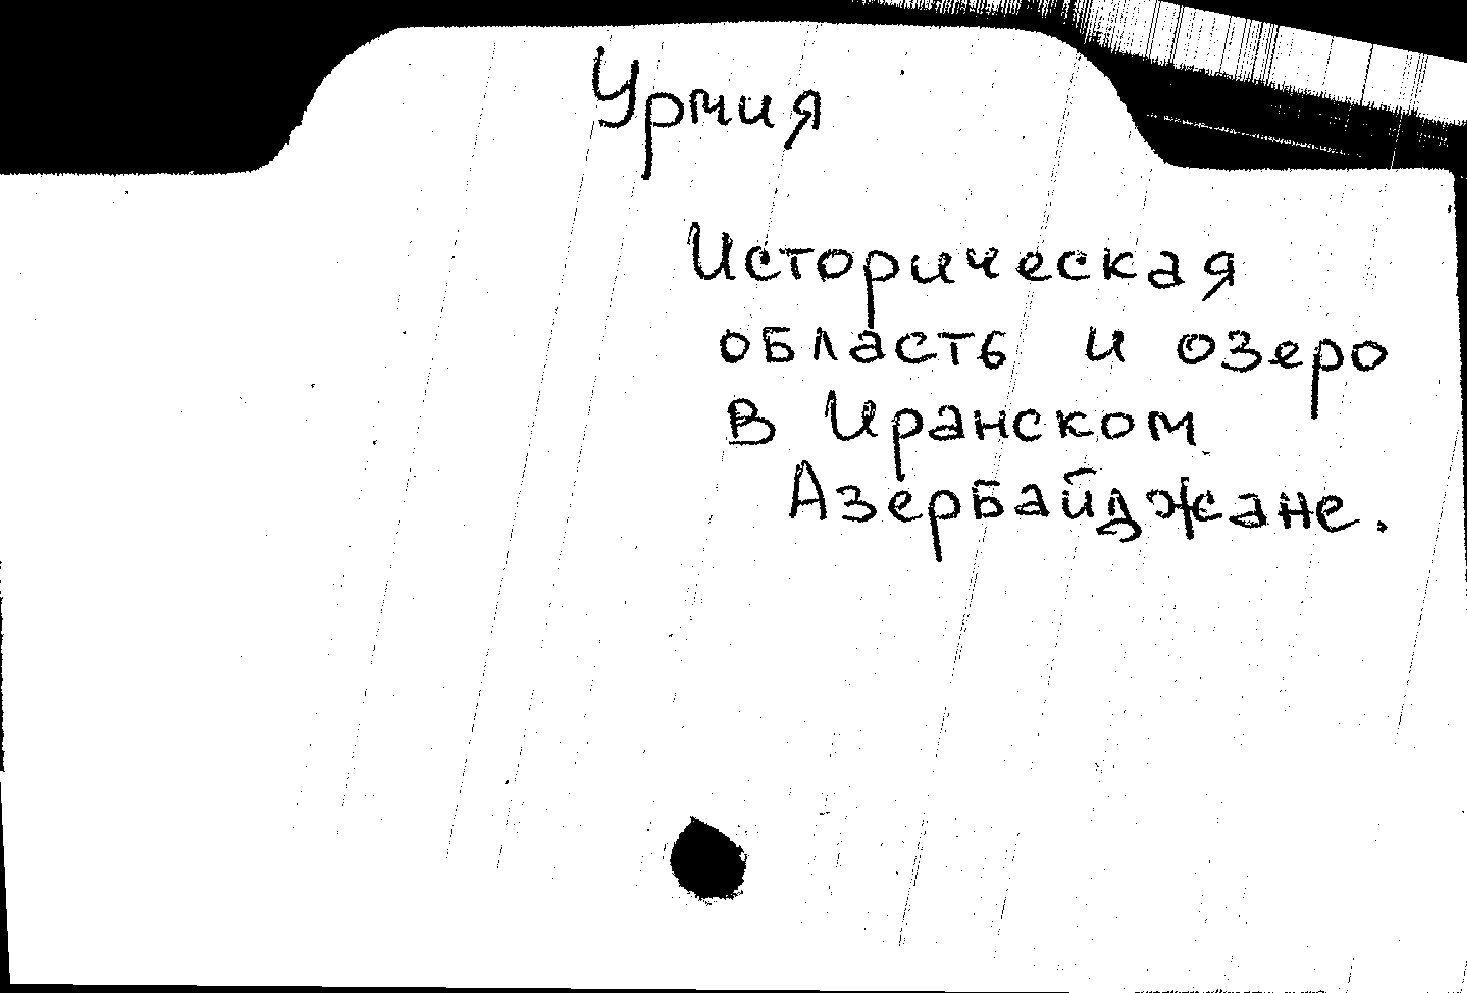 Урмия
Историческая
область и озеро
в Иранском
Азербайджане.